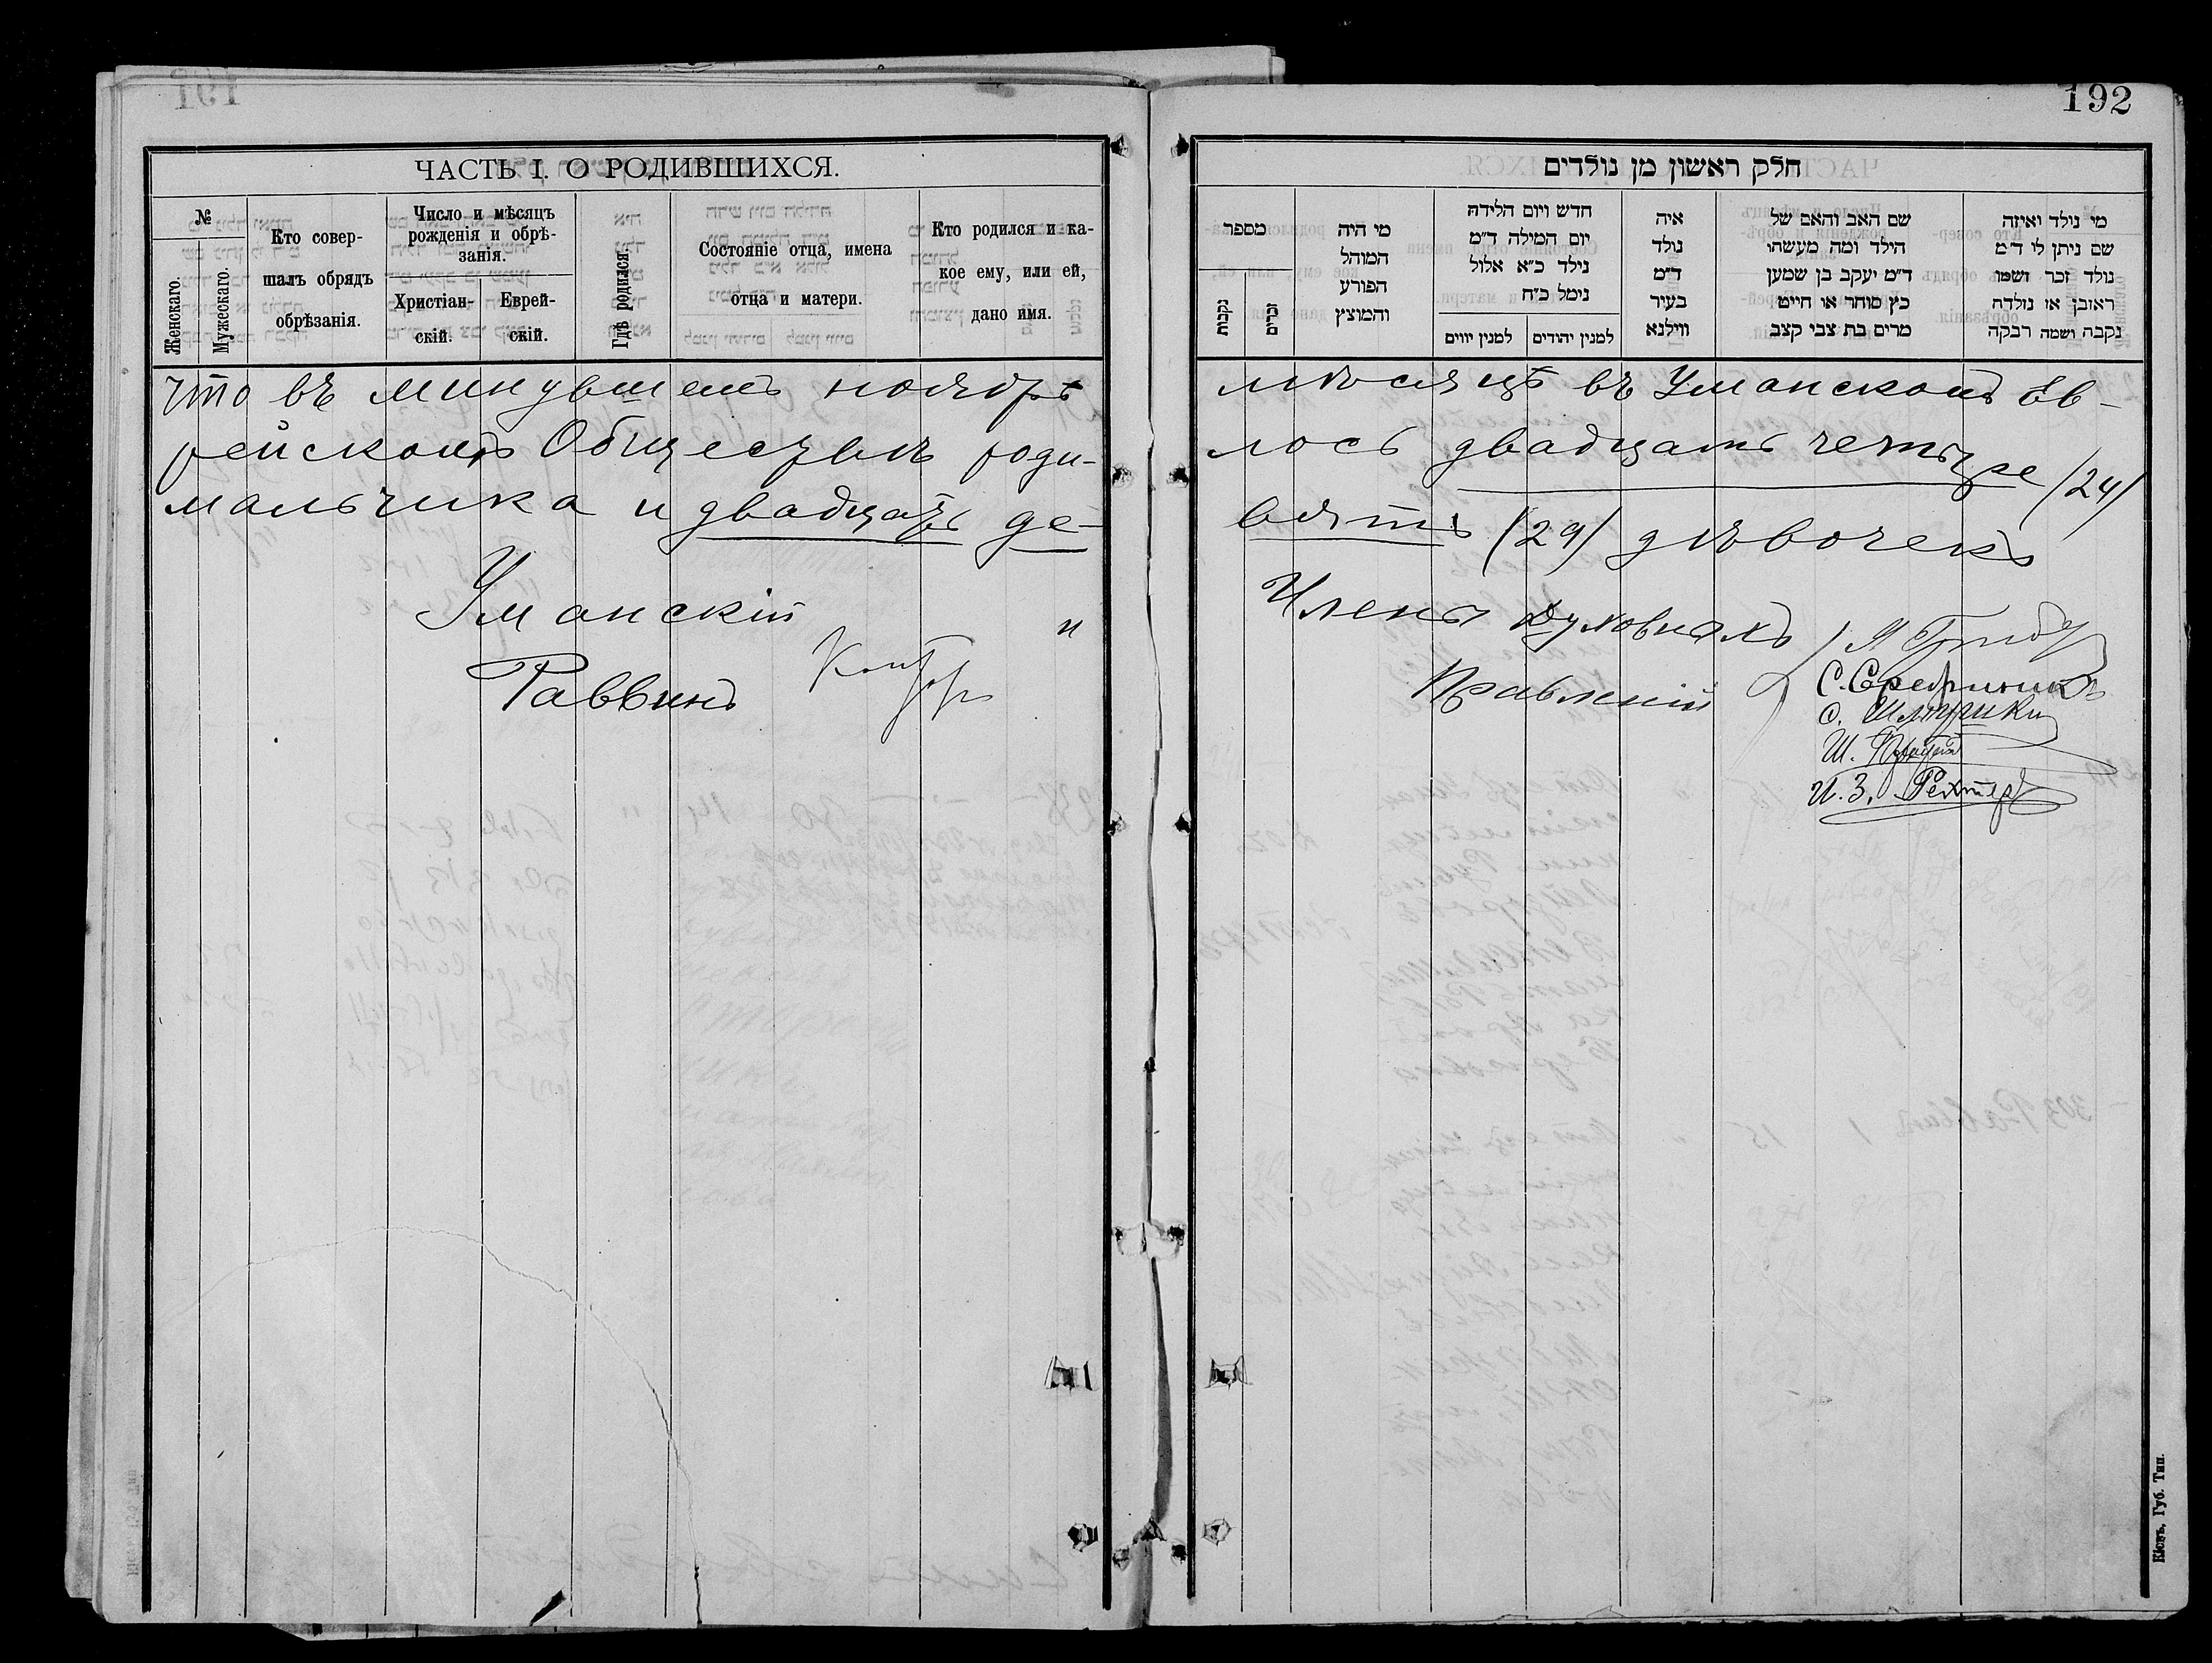 192
ЧАСТЬ I. О РОДИВШИХСЯ.
№
Женскаго.
Мужескаго.
Кто совер-
шалъ обрядъ
обрѣзанія.
Число и мѣсяцъ
рожденія и обрѣ-
занія.
Христіан-
скій.
Еврей-
скій.
Гдѣ родился.
Состояніе отца, имена
отца и матери.
Кто родился и ка-
кое ему, или ей,
дано имя.
חלק ראשון מן נולדים
מספר
נקבות
זכרים
מי היה
המוהל
הפורע
והמוצץ
חדש ויום הלידה
יום המילה ד״מ
נילד כ״א אלול
נימל כ״ח
למנין יווים
למנין יהודים
איה
נולד
ד״מ
בעיר
ווילנא
שם האב והאם של
הילד ומה מעשהו
ד״מ יעקב בן שמען
כץ סוחר או חייט
מרים בת צבי קצב
מי נולד ואיזה
שם ניתן לו ד״מ
נולד זכר ושמו
ראובן או נולדה
נקבה ושמה רבקה
что въ минувшемъ ноябрѣ мѣсяцѣ въ Уманскомъ Ев-
рейскомъ Обществѣ роди-лось двадцать четыре (24)
мальчика и двадцать де-вять (29) дѣвочекъ
Уманскій и Члены Духовныхъ
Раввинъ Правленій
С. Середникъ
И. З. Рехтеръ
Кіевъ, Губ. Тип.